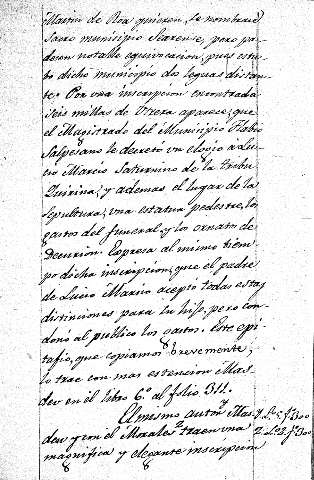 Martin de Roa quieren, se nombrase
sacro municipio Serrense, pero pa-
decen notable equivocacion, pues estu-
bo dicho municipio dos leguas distan-
te. Por una inscripcion encontrada
seis millas de Utrera aparece, que
el Magistrado del Municipio Flabio
Salpesano le decretó un elogio a Lu-
cio Marcio Saturnino de la tribu
Quirina; y ademas el lugar de la
sepultura, una estatua pedestre, los
gastos del funeral y los ornatos de
Decurion. Expresa al mismo tiem-
po dicha inscripcion, que el padre
de Lucio Marcio aceptó todas estas
distinciones para su hijo, pero con-
donó al publico los gastos. Este epi-
tafio, que copiamos brevemente,
lo trae con mas estencion Mas-
deu en el libro 6º al folio 311.
El mesmo autor y Mas-
deu y con el Morales traen una
magnifica y elegante inscripcion